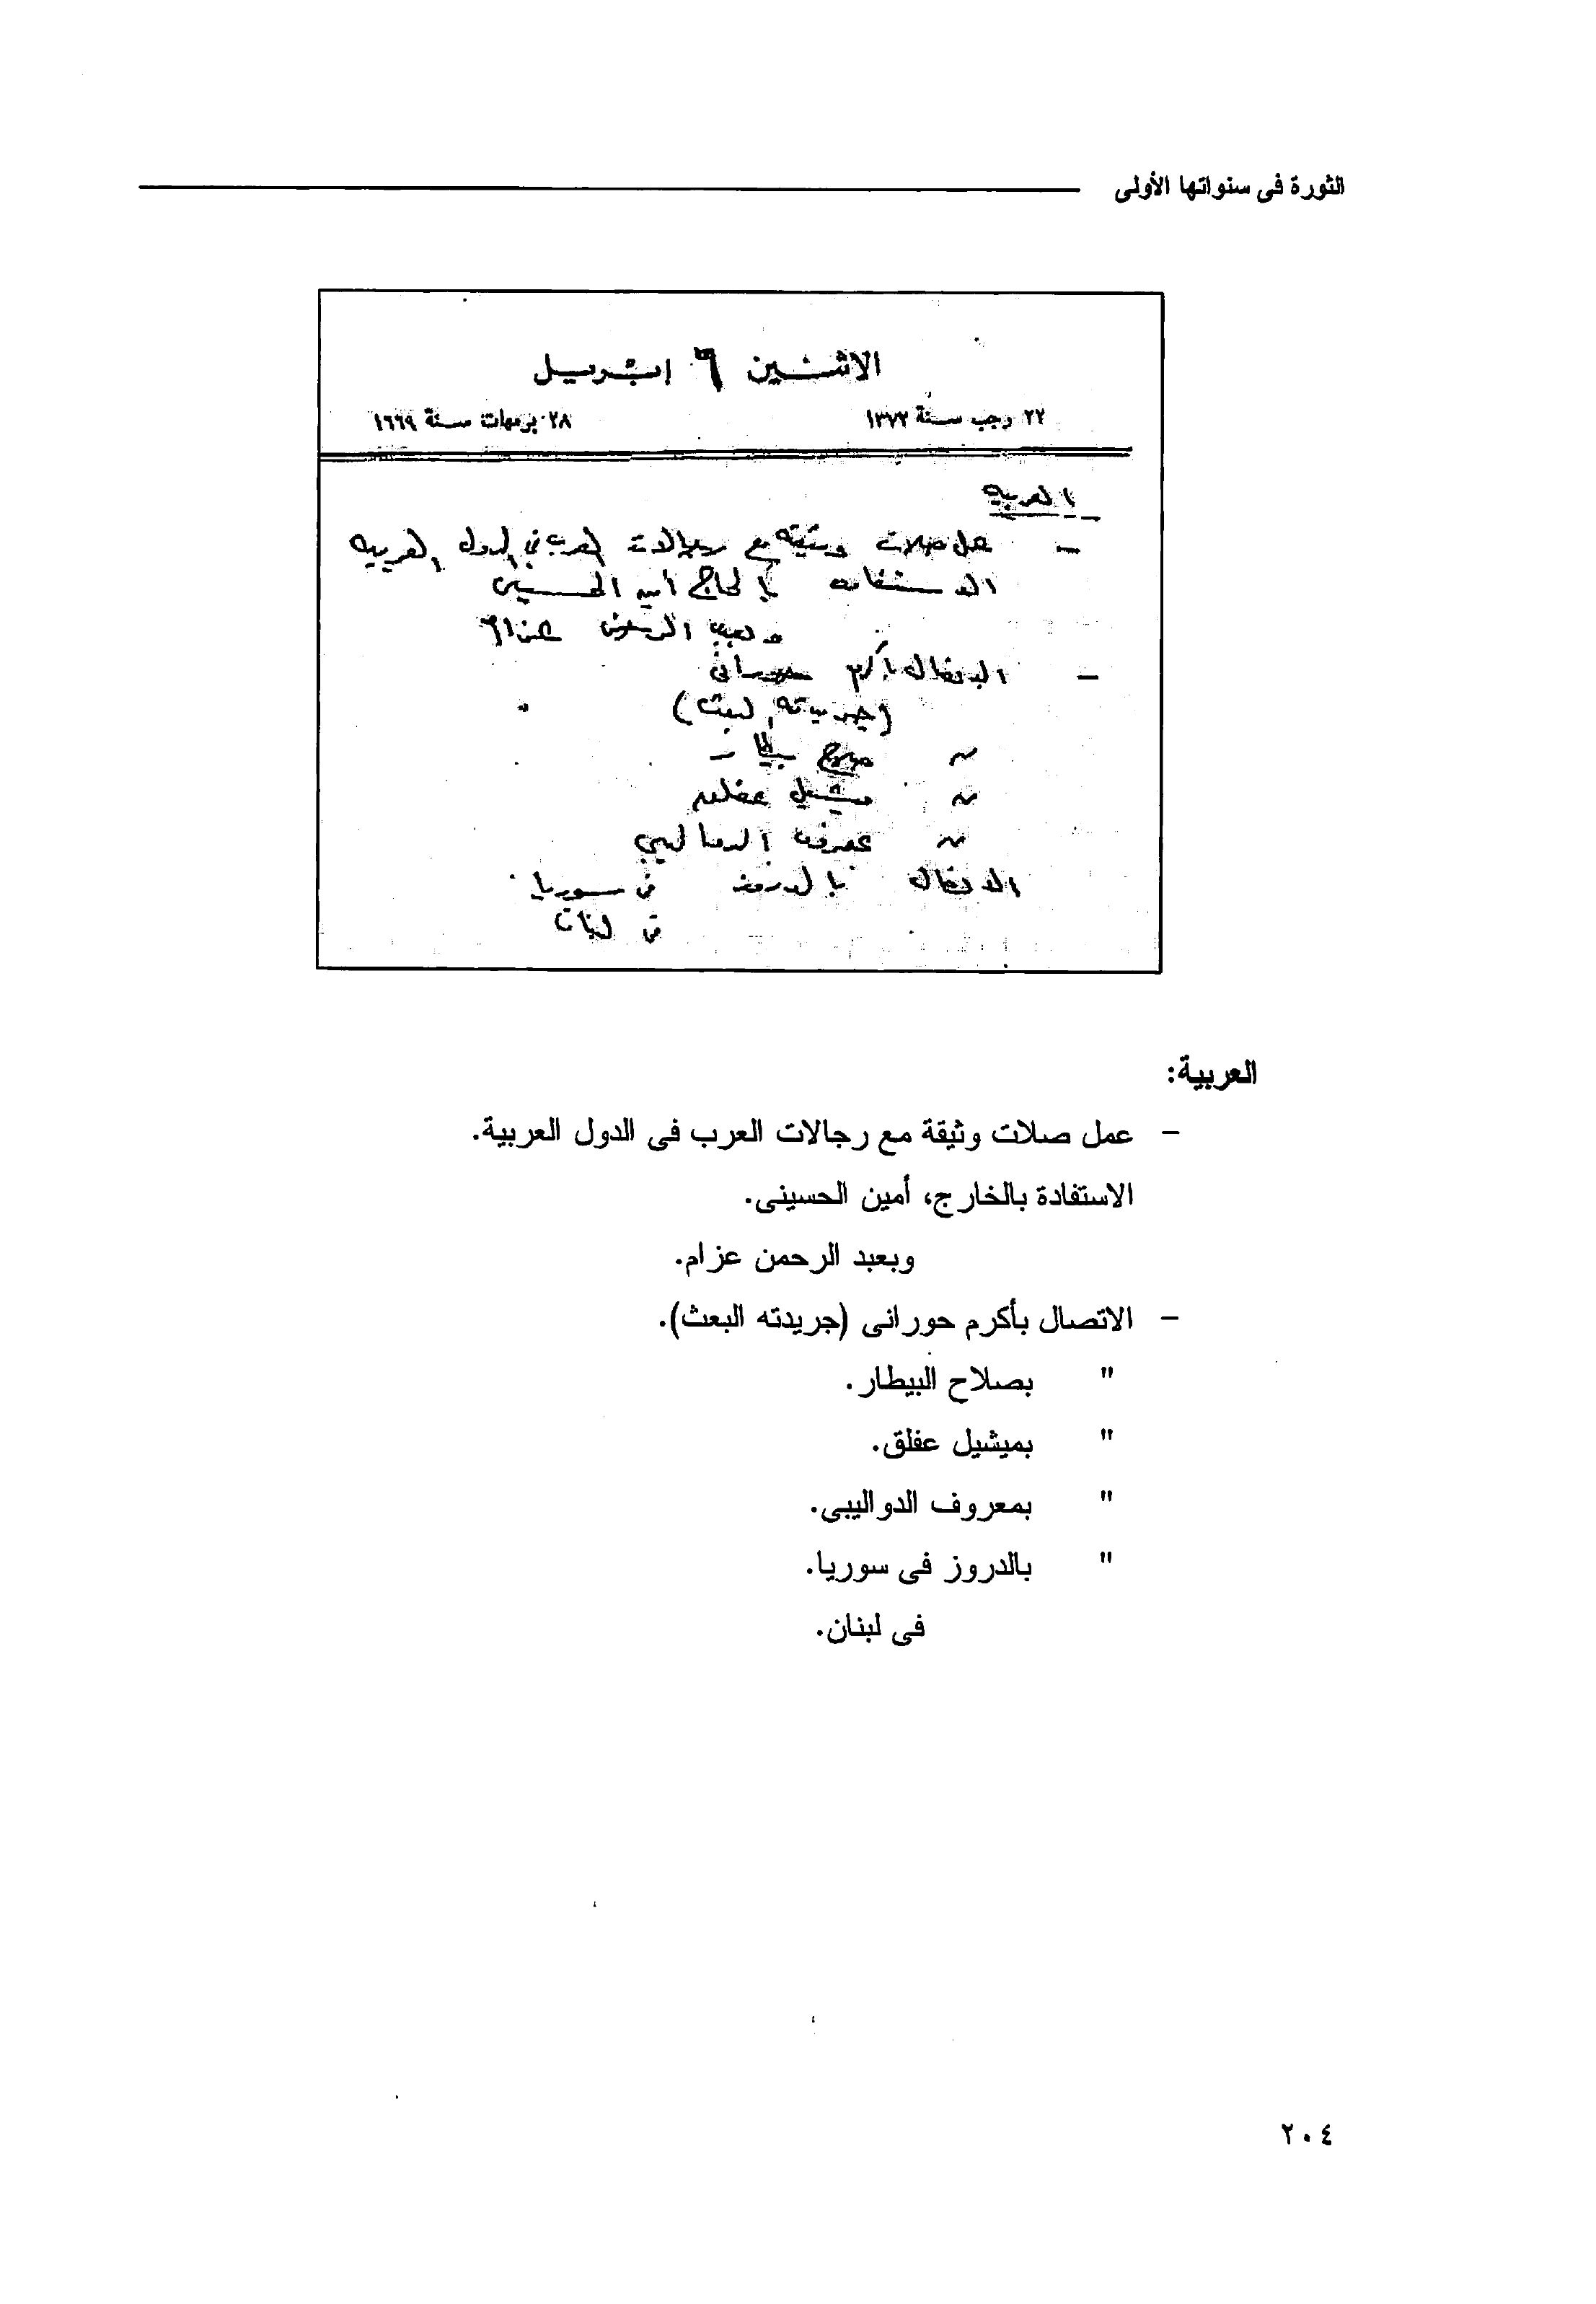 الثورة فى سنواتها الأولى
الاثنين ٦ ابريل
٢٢ رجب سنة ١٣٧٢
٢٨ برمهات سنة ١٦٦٩
العربيه
- عمل صلات وثيقه مع رجالات العرب فى الدول العربيه
الاستفاده بالحاج أمين الحسينى
وبعبد الرحمن عزام
- الاتصال بأكرم حورانى
(جريدته البعث)
" صلاح بيطار
" ميشيل عفلق
" معروف الدواليبى
الاتصال بالدروز فى سوريا
فى لبنان
العربية:
- عمل صلات وثيقة مع رجالات العرب فى الدول العربية.
الاستفادة بالخارج، أمين الحسينى.
وبعبد الرحمن عزام.
- الاتصال بأكرم حورانى (جريدته البعث).
" بصلاح البيطار.
" بميشيل عفلق.
" بمعروف الدواليبى.
" بالدروز فى سوريا.
فى لبنان.
٢٠٤